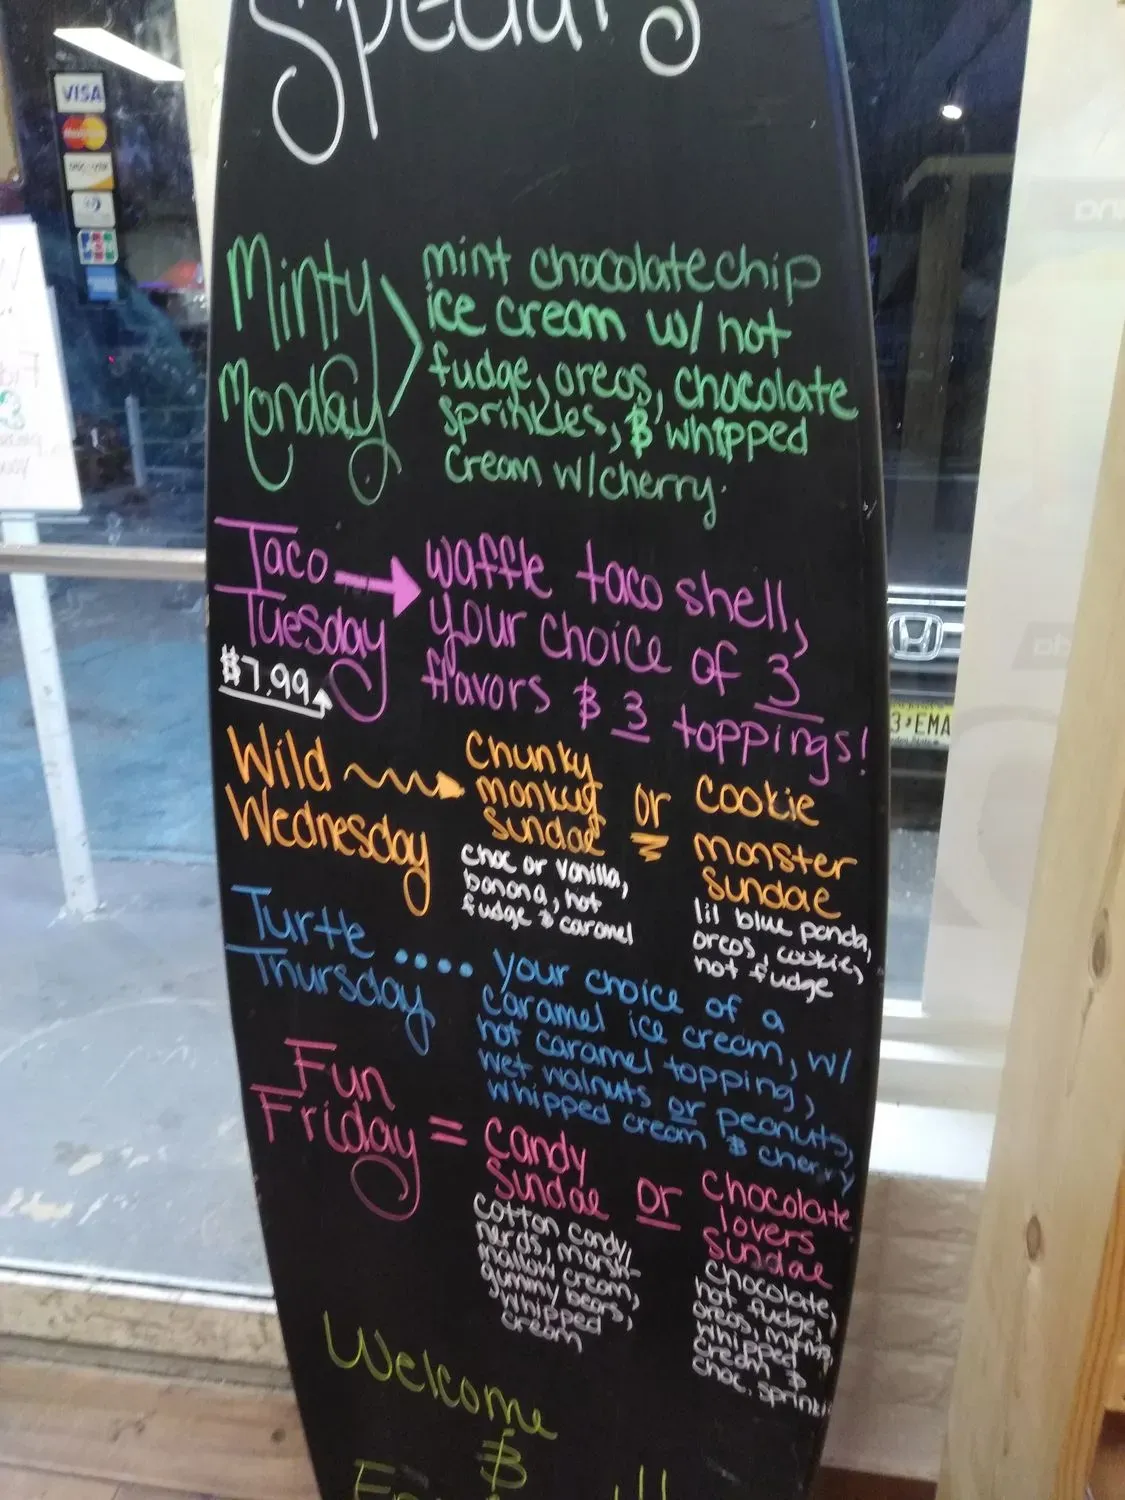 Specials
VISA
MasterCard
Minty
Monday
mint chocolate chip
ice cream w/ hot
fudge, oreos, chocolate
sprinkles, & whipped
cream w/cherry.
Taco
Tuesday
$7.99
waffle taco shell,
your choice of 3
flavors & 3 toppings!
Wild
Wednesday
Chunky
monkey
sundae
choc or vanilla,
banana, hot
fudge & caramel
or
Cookie
monster
sundae
lil blue panda,
oreos, cookie,
hot fudge
Turtle
Thursday
....
your choice of a
caramel ice cream, w/
hot caramel topping,
wet walnuts or peanuts,
whipped cream & cherry
Fun
Friday =
Candy
Sundae
cotton candy,
nerds, marsh-
mallow cream,
gummy bears,
whipped
cream
or
chocolate
lovers
sundae
chocolate,
hot fudge,
oreos,
whipped
cream &
choc. sprinkl
Welcome
&
3•EMA